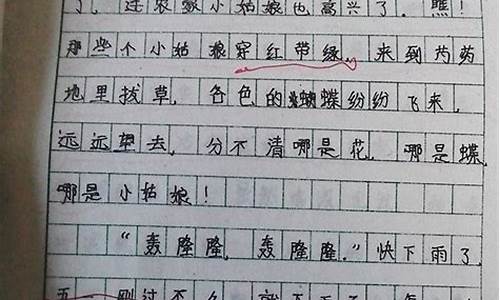 了，连农家小姑娘也高兴了。瞧！
那些个小姑娘穿红带绿，来到芍药
地里拔草，各色的蝴蝶纷纷飞来，
远远望去，分不清哪是花，哪是蝶，
哪是小姑娘！
“轰隆隆，轰隆隆。”快下雨了，